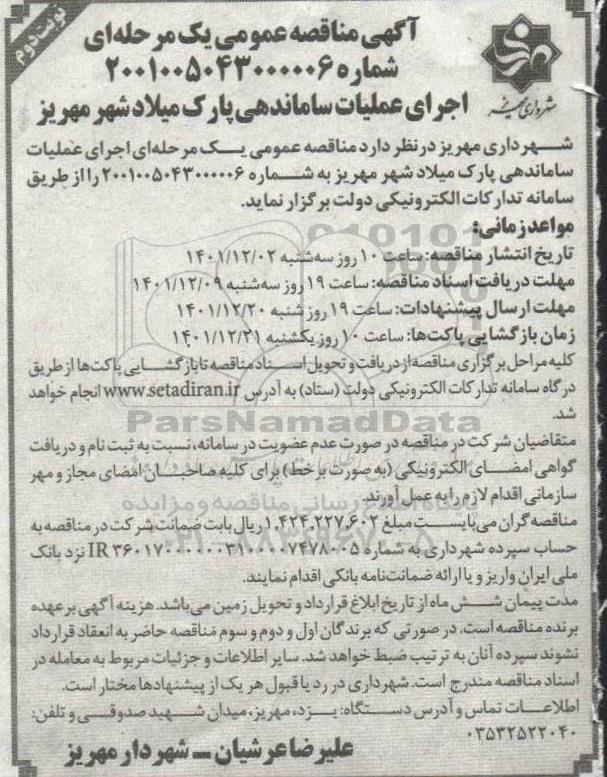 نوبت دوم
آگهی مناقصه عمومی یک مرحله‌ای
شماره ۲۰۰۱۰۰۵۰۴۳۰۰۰۰۰۶
اجرای عملیات ساماندهی پارک میلاد شهر مهریز
شهرداری مهریز
شهرداری مهریز در نظر دارد مناقصه عمومی یک مرحله‌ای اجرای عملیات
ساماندهی پارک میلاد شهر مهریز به شماره ۲۰۰۱۰۰۵۰۴۳۰۰۰۰۰۶ را از طریق
سامانه تدارکات الکترونیکی دولت برگزار نماید.
مواعد زمانی:
تاریخ انتشار مناقصه: ساعت ۱۰ روز سه‌شنبه ۱۴۰۱/۱۲/۰۲
مهلت دریافت اسناد مناقصه: ساعت ۱۹ روز سه‌شنبه ۱۴۰۱/۱۲/۰۹
مهلت ارسال پیشنهادات: ساعت ۱۹ روز شنبه ۱۴۰۱/۱۲/۲۰
زمان بازگشایی پاکت‌ها: ساعت ۱۰ روز یکشنبه ۱۴۰۱/۱۲/۲۱
کلیه مراحل برگزاری مناقصه از دریافت و تحویل اسناد مناقصه تا بازگشایی پاکت‌ها از طریق
درگاه سامانه تدارکات الکترونیکی دولت (ستاد) به آدرس www.setadiran.ir انجام خواهد
شد.
ParsNamadData
متقاضیان شرکت در مناقصه در صورت عدم عضویت در سامانه، نسبت به ثبت نام و دریافت
گواهی امضای الکترونیکی (به صورت برخط) برای کلیه صاحبان امضای مجاز و مهر
سازمانی اقدام لازم را به عمل آورند.
پایگاه اطلاع رسانی مناقصه و مزایده
مناقصه‌گران می‌بایست مبلغ ۱.۴۲۴.۲۲۷.۶۰۲ ریال بابت ضمانت شرکت در مناقصه به
حساب سپرده شهرداری به شماره IR ۳۶۰۱۷۰۰۰۰۰۰۳۱۰۰۰۰۷۴۷۸۰۰۵ نزد بانک
ملی ایران واریز و یا ارائه ضمانت‌نامه بانکی اقدام نمایند.
مدت پیمان شش ماه از تاریخ ابلاغ قرارداد و تحویل زمین می‌باشد. هزینه آگهی بر عهده
برنده مناقصه است. در صورتی که برندگان اول و دوم و سوم مناقصه حاضر به انعقاد قرارداد
نشوند سپرده آنان به ترتیب ضبط خواهد شد. سایر اطلاعات و جزئیات مربوط به معامله در
اسناد مناقصه مندرج است. شهرداری در رد یا قبول هر یک از پیشنهادها مختار است.
اطلاعات تماس و آدرس دستگاه: یزد، مهریز، میدان شهید صدوقی و تلفن:
۰۳۵۳۲۵۲۲۰۴۰
علیرضا عرشیان ـ شهردار مهریز